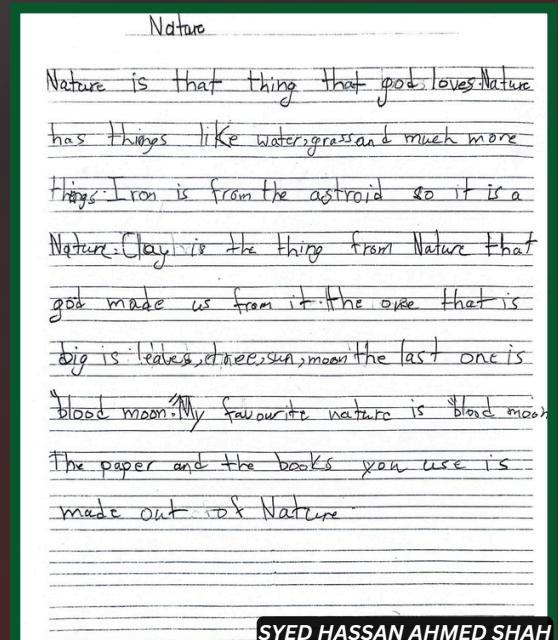 Nature
Nature is that thing that god loves.Nature
has things like water,grass and much more
things.Iron is from the astroid so it is a
Nature.Clay is the thing from Nature that
god made us from it.the one that is
big is leaves,tree,sun,moon the last one is
"blood moon".My favourite nature is "blood moon
The paper and the books you use is
made out of Nature
SYED HASSAN AHMED SHAH